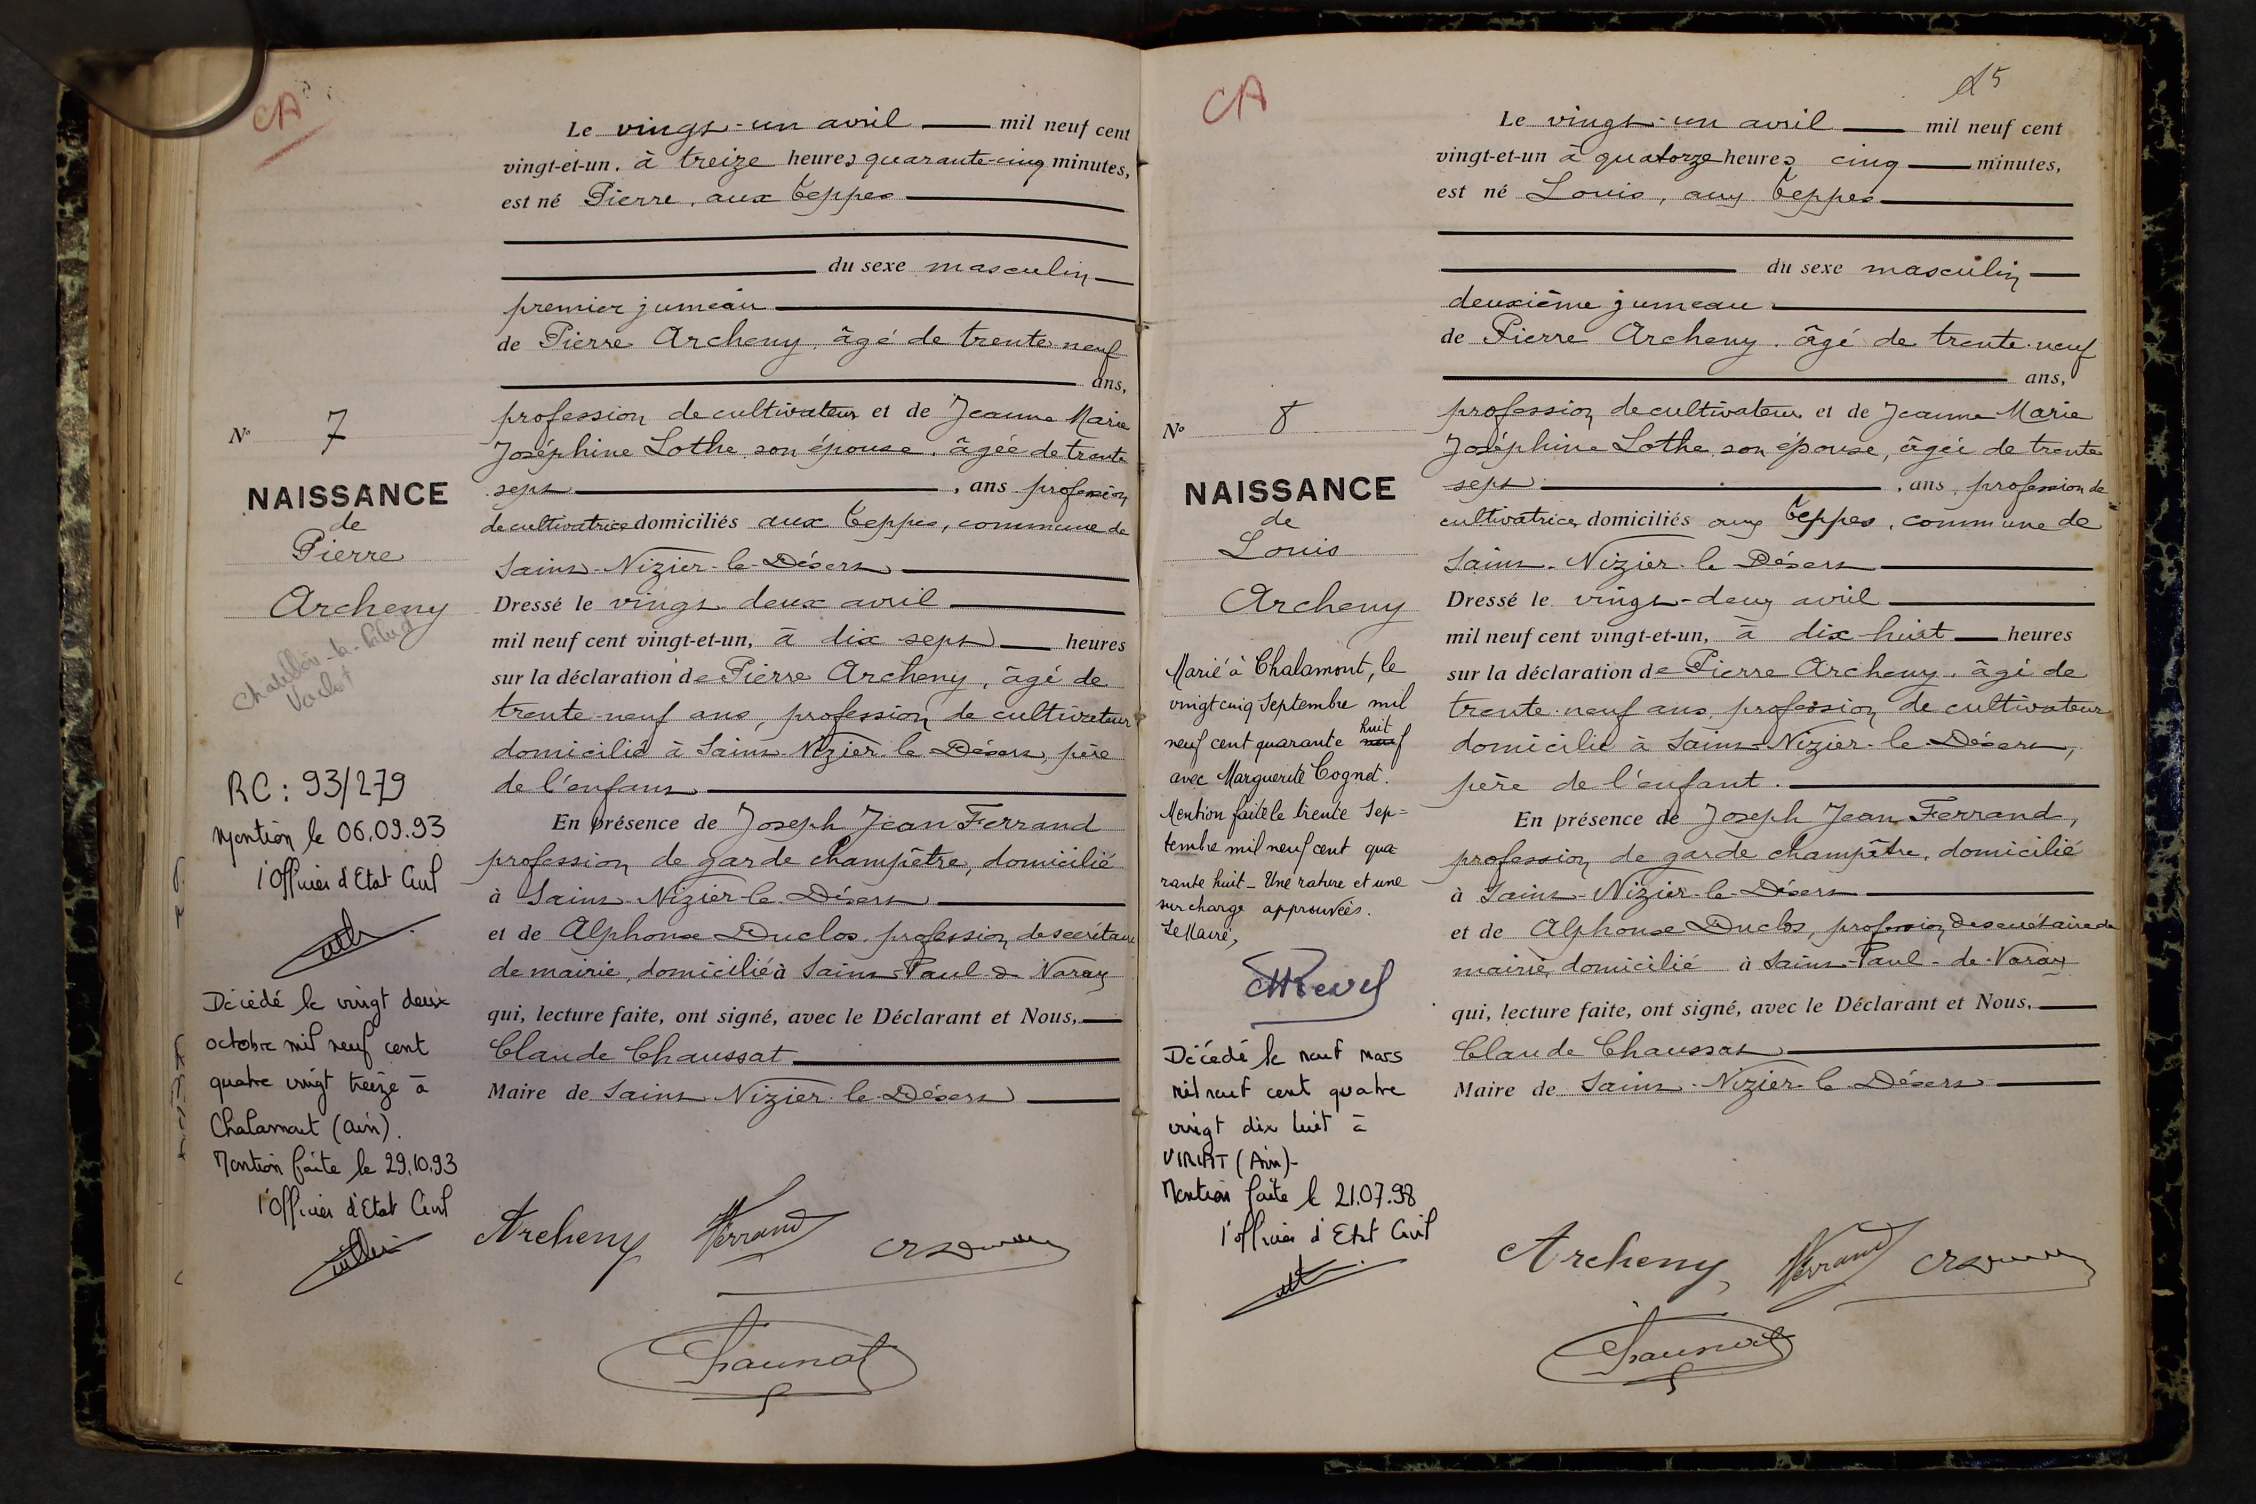 CA
Le vingt-un avril mil neuf cent
vingt-et-un, à treize heures quarante-cinq minutes,
est né Pierre, aux Teppes
du sexe masculin
premier jumeau
de Pierre Archeny, âgé de trente neuf
ans,
profession de cultivateur et de Jeanne Marie
Joséphine Lothe son épouse, âgée de trente
sept, ans profession
de cultivatrice domiciliés aux Teppes, commune de
Saint-Nizier-le-Désert
Dressé le vingt-deux avril
mil neuf cent vingt-et-un, à dix sept heures
sur la déclaration de Pierre Archeny, âgé de
trente-neuf ans, profession de cultivateur
domicilié à Saint-Nizier-le-Désert, père
de l'enfant
En présence de Joseph Jean Ferrand
profession de garde champêtre, domicilié
à Saint-Nizier-le-Désert
et de Alphonse Duclos, profession de secrétaire
de mairie, domicilié à Saint-Paul-de-Varax
qui, lecture faite, ont signé, avec le Déclarant et Nous,
Claude Chaussat
Maire de Saint-Nizier-le-Désert
Archeny Ferrand
N° 7
NAISSANCE
de
Pierre
Archeny
Chatillon-la-Palud
RC : 93/279
Mention le 06.09.93
l'Officier d'Etat Civil
Décédé le vingt deux
octobre mil neuf cent
quatre vingt treize à
Chalamont (Ain).
Mention faite le 29.10.93
l'Officier d'Etat Civil
CA
Le vingt-un avril mil neuf cent
vingt-et-un à quatorze heures cinq minutes,
est né Louis, aux Teppes
du sexe masculin
deuxième jumeau
de Pierre Archeny, âgé de trente-neuf
ans,
profession de cultivateur et de Jeanne Marie
Joséphine Lothe son épouse, âgée de trente
sept, ans, profession de
cultivatrice domiciliés aux Teppes, commune de
Saint-Nizier-le-Désert
Dressé le vingt-deux avril
mil neuf cent vingt-et-un, à dix-huit heures
sur la déclaration de Pierre Archeny, âgé de
trente-neuf ans, profession de cultivateur
domicilié à Saint-Nizier-le-Désert,
père de l'enfant.
En présence de Joseph Jean Ferrand,
profession de garde champêtre, domicilié
à Saint-Nizier-le-Désert
et de Alphonse Duclos, profession de secrétaire de
mairie, domicilié à Saint-Paul-de-Varax
qui, lecture faite, ont signé, avec le Déclarant et Nous,
Claude Chaussat
Maire de Saint-Nizier-le-Désert
Archeny Ferrand
N° 8
NAISSANCE
de
Louis
Archeny
Marié à Chalamont, le
vingt cinq Septembre mil
neuf cent quarante huit
avec Marguerite Cognet.
Mention faite le trente Sep=
tembre mil neuf cent qua
rante huit - Une rature et une
surcharge approuvées.
Le Maire,
Décédé le neuf mars
mil neuf cent quatre
vingt dix huit à
VIRIAT (Ain)-
Mention faite le 21.07.98
l'officier d'Etat Civil